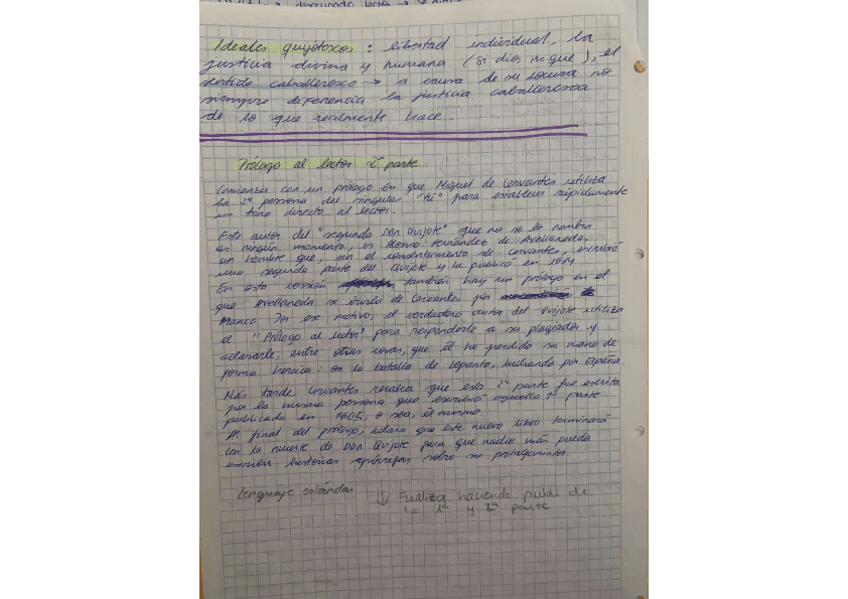 Ideales quijotescos : libertad individual, la
justicia divina y humana (si dios no que), el
sentido caballeresco → a causa de su locura no
siempre diferencia la justicia caballeresca
de lo que realmente hace.
Prólogo al lector 2ª parte
Comienza con un prólogo en que Miguel de Cervantes utiliza
la 2ª persona del singular "tú" para establecer rápidamente
un tono directo al lector.
Este autor del "segundo Don Quijote" que no se lo nombra
en ningún momento, es Alonso Fernández de Avellaneda,
un hombre que, sin el consentimiento de Cervantes, escribió
una segunda parte del Quijote y la publicó en 1614
En esta versión también hay un prólogo en el
que Avellaneda se burla de Cervantes por
manco. Por ese motivo, el verdadero autor del Quijote utiliza
el "Prólogo al lector" para responderle a su plagiador y
aclararle, entre otras cosas, que él ha perdido su mano de
forma heroica: en la batalla de Lepanto, luchando por España.
Más tarde Cervantes recalca que esta 2ª parte fue escrita
por la misma persona que escribió aquella 1ª parte
publicada en 1605, o sea, él mismo.
Al final del prólogo, aclara que este nuevo libro terminará
con la muerte de Don Quijote para que nadie más pueda
escribir historias apócrifas sobre su protagonista.
Lenguaje estándar ↓ Finaliza haciendo publi de
la 1ª y 2ª parte